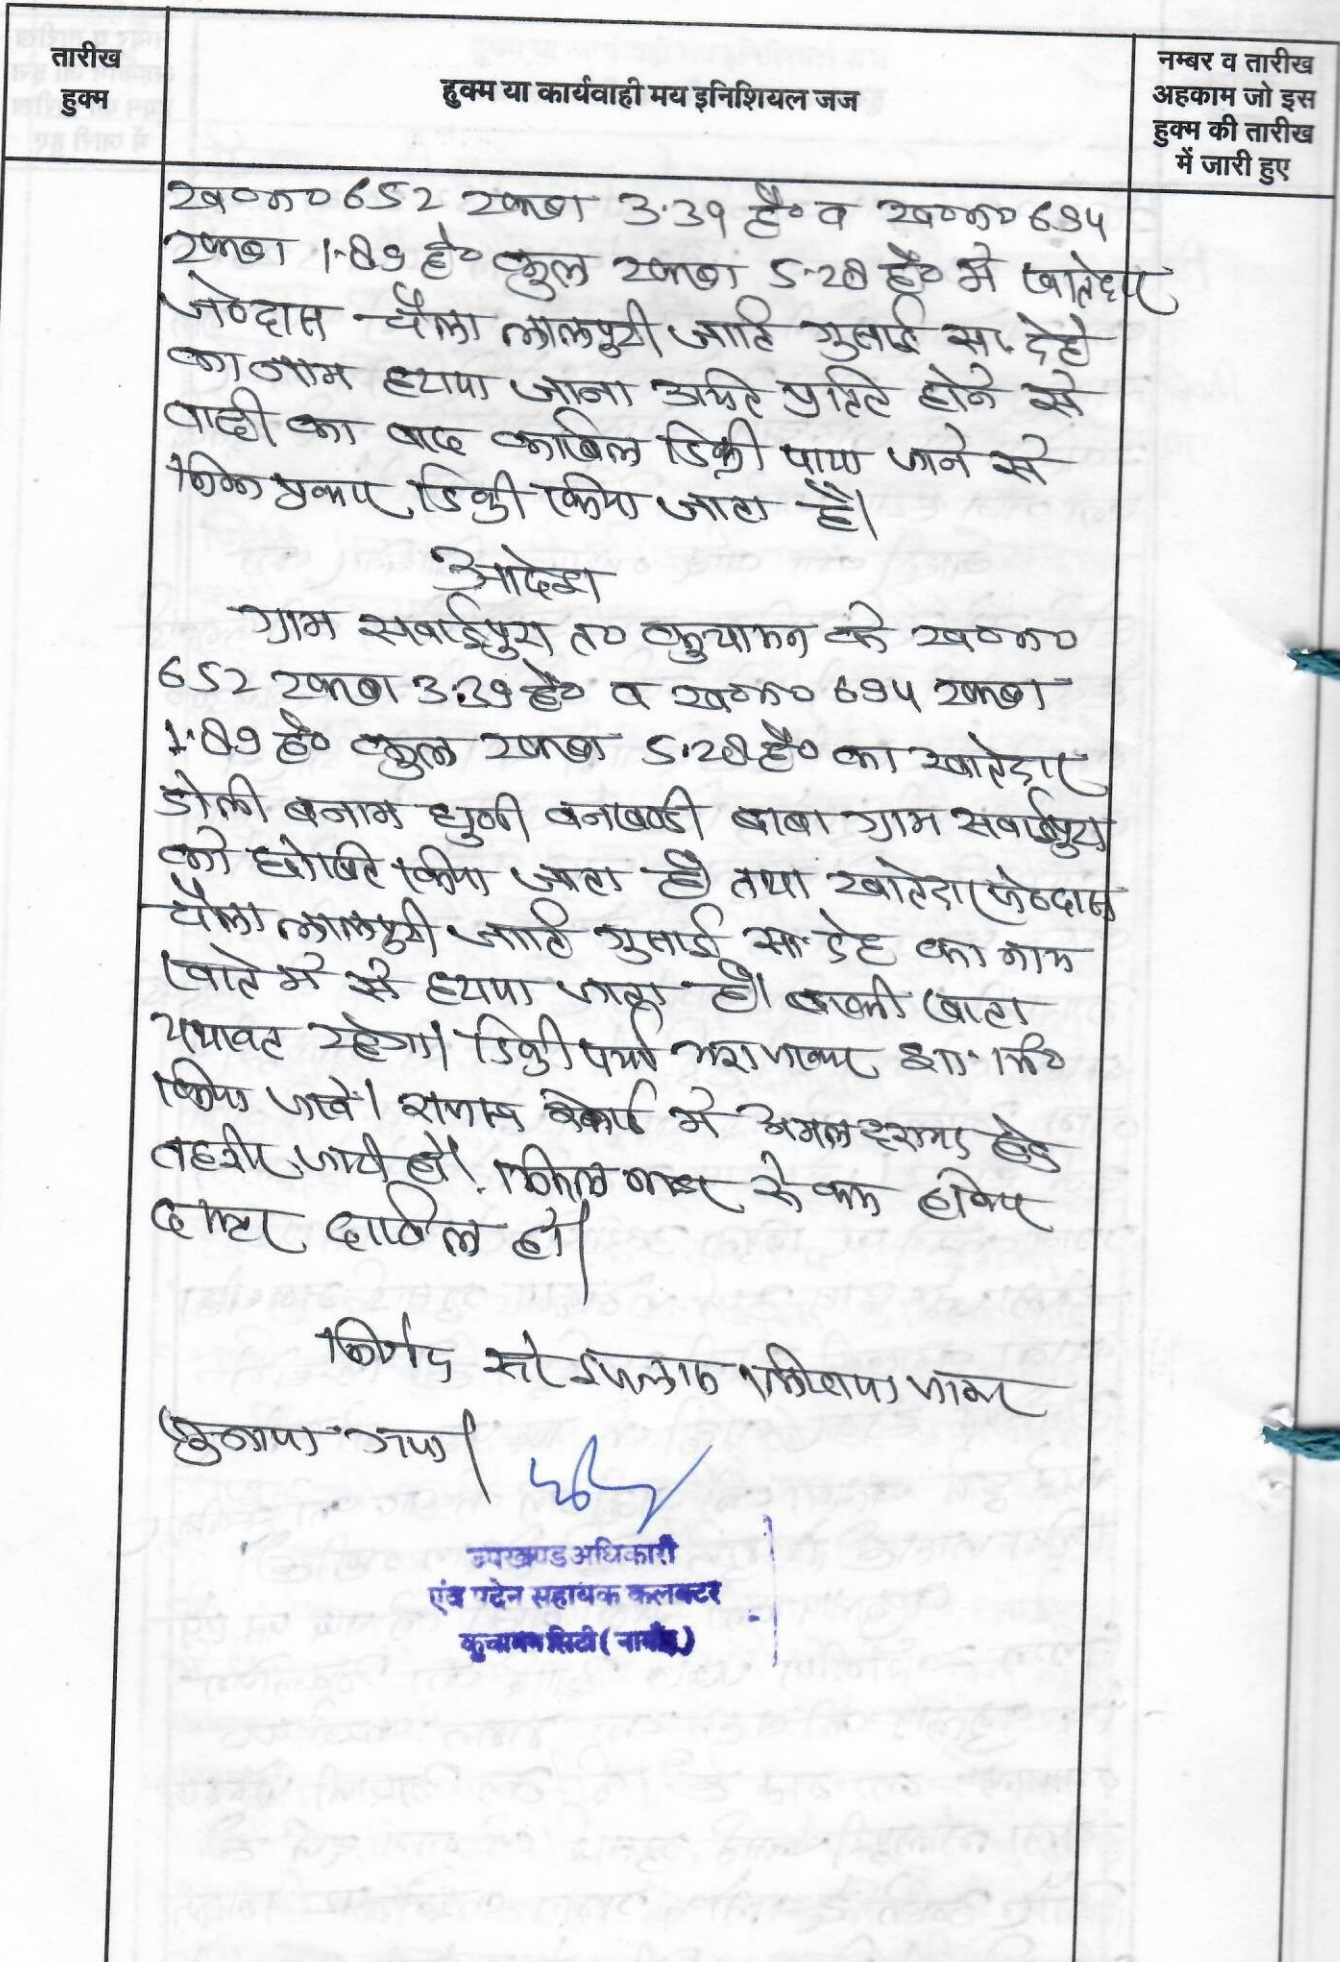 तारीख
हुक्म
हुक्म या कार्यवाही मय इनिशियल जज
नम्बर व तारीख
अहकाम जो इस
हुक्म की तारीख
में जारी हुए
ख०न० 652 रकबा 3.39 है० व ख०न० 694
रकबा 1.89 है० कुल रकबा 5.28 है० में खातेदार
चैला लालपुरी जाति गुसाई सा. देह
का नाम हटाया जाना उचित प्रतित होने से
वादी का वाद काबिल डिक्री पाया जाने से
निम्न प्रकार डिक्री किया जाता है।
आदेश
ग्राम सवाईपुरा त० कुचामन के ख०न०
652 रकबा 3.39 है० व ख०न० 694 रकबा
1.89 है० कुल रकबा 5.28 है० का खातेदार
डोली बनाम धुणी वनखण्डी बाबा ग्राम सवाईपुरा
को घोषित किया जाता है तथा खातेदार
चैला लालपुरी जाति गुसाई सा. देह का नाम
खाते में से हटाया जाता है। बाकी खाता
यथावत रहेगा। डिक्री पर्चा जारा जाकर शा.मि०
किया जावे। राजस्व रेकर्ड में अमल दरामद हेतु
तहरीर जारी हो। मिसल नम्बर से कम होकर
दफ्तर दाखिल हो।
निर्णय सरे इजलास लिखाया जाकर
सुनाया गया।
उपखण्ड अधिकारी
एंव पदेन सहायक कलक्टर
कुचामन सिटी (नागौर)